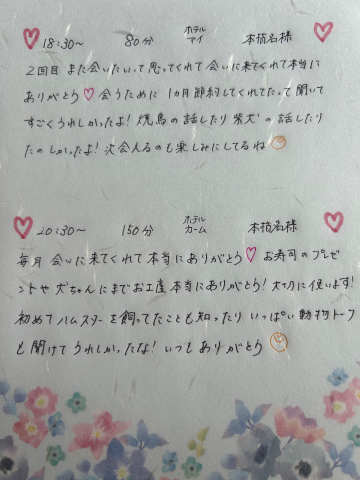 18:30～ 80分 ホテルマイ 本指名様
2回目 また会いたいって思ってくれて会いに来てくれて本当に
ありがとう♡会うために1ヵ月節約してくれてたって聞いて
すごくうれしかったよ！焼鳥の話したり柴犬の話したり
たのしかったよ！次会えるのも楽しみにしてるね
20:30～ 150分 ホテルカーム 本指名様
毎月会いに来てくれて本当にありがとう♡お寿司のプレゼ
ントや犬ちゃんにまでお土産本当にありがとう！大切に使います！
初めてハムスターを飼ってたことも知ったりいっぱい動物トーク
も聞けてうれしかったな！いつもありがとう